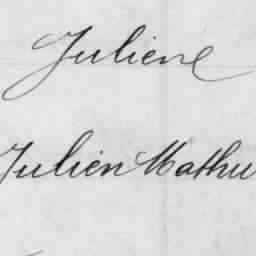 Juliene
Julien Mathu